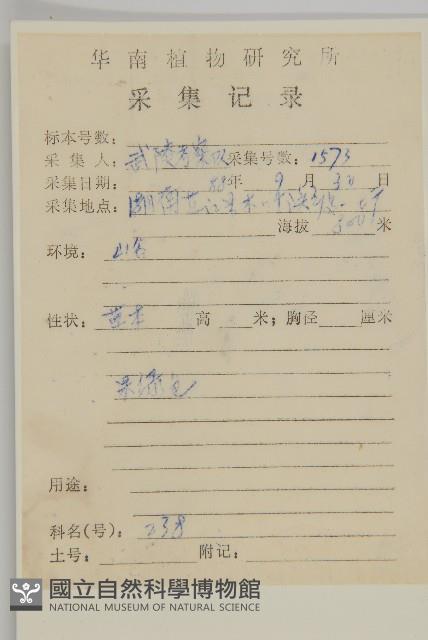 华南植物研究所
采集记录
标本号数：
采集人：武陵考察队 采集号数：1573
采集日期：88年9月30日
采集地点：湖南
海拔 300 米
环境：山谷
性状：草本 高 米；胸径 厘米
果绿色
用途：
科名(号)：238
土号： 附记：
國立自然科學博物館
NATIONAL MUSEUM OF NATURAL SCIENCE